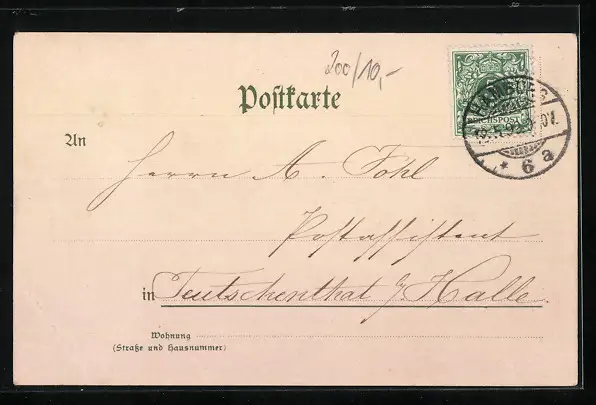 200/10,-
Postkarte
HAMBURG
REICHSPOST
* 6 a
An
Herrn A. Fohl
Postassistent
in Teutschenthal b/ Halle.
Wohnung
(Straße und Hausnummer)